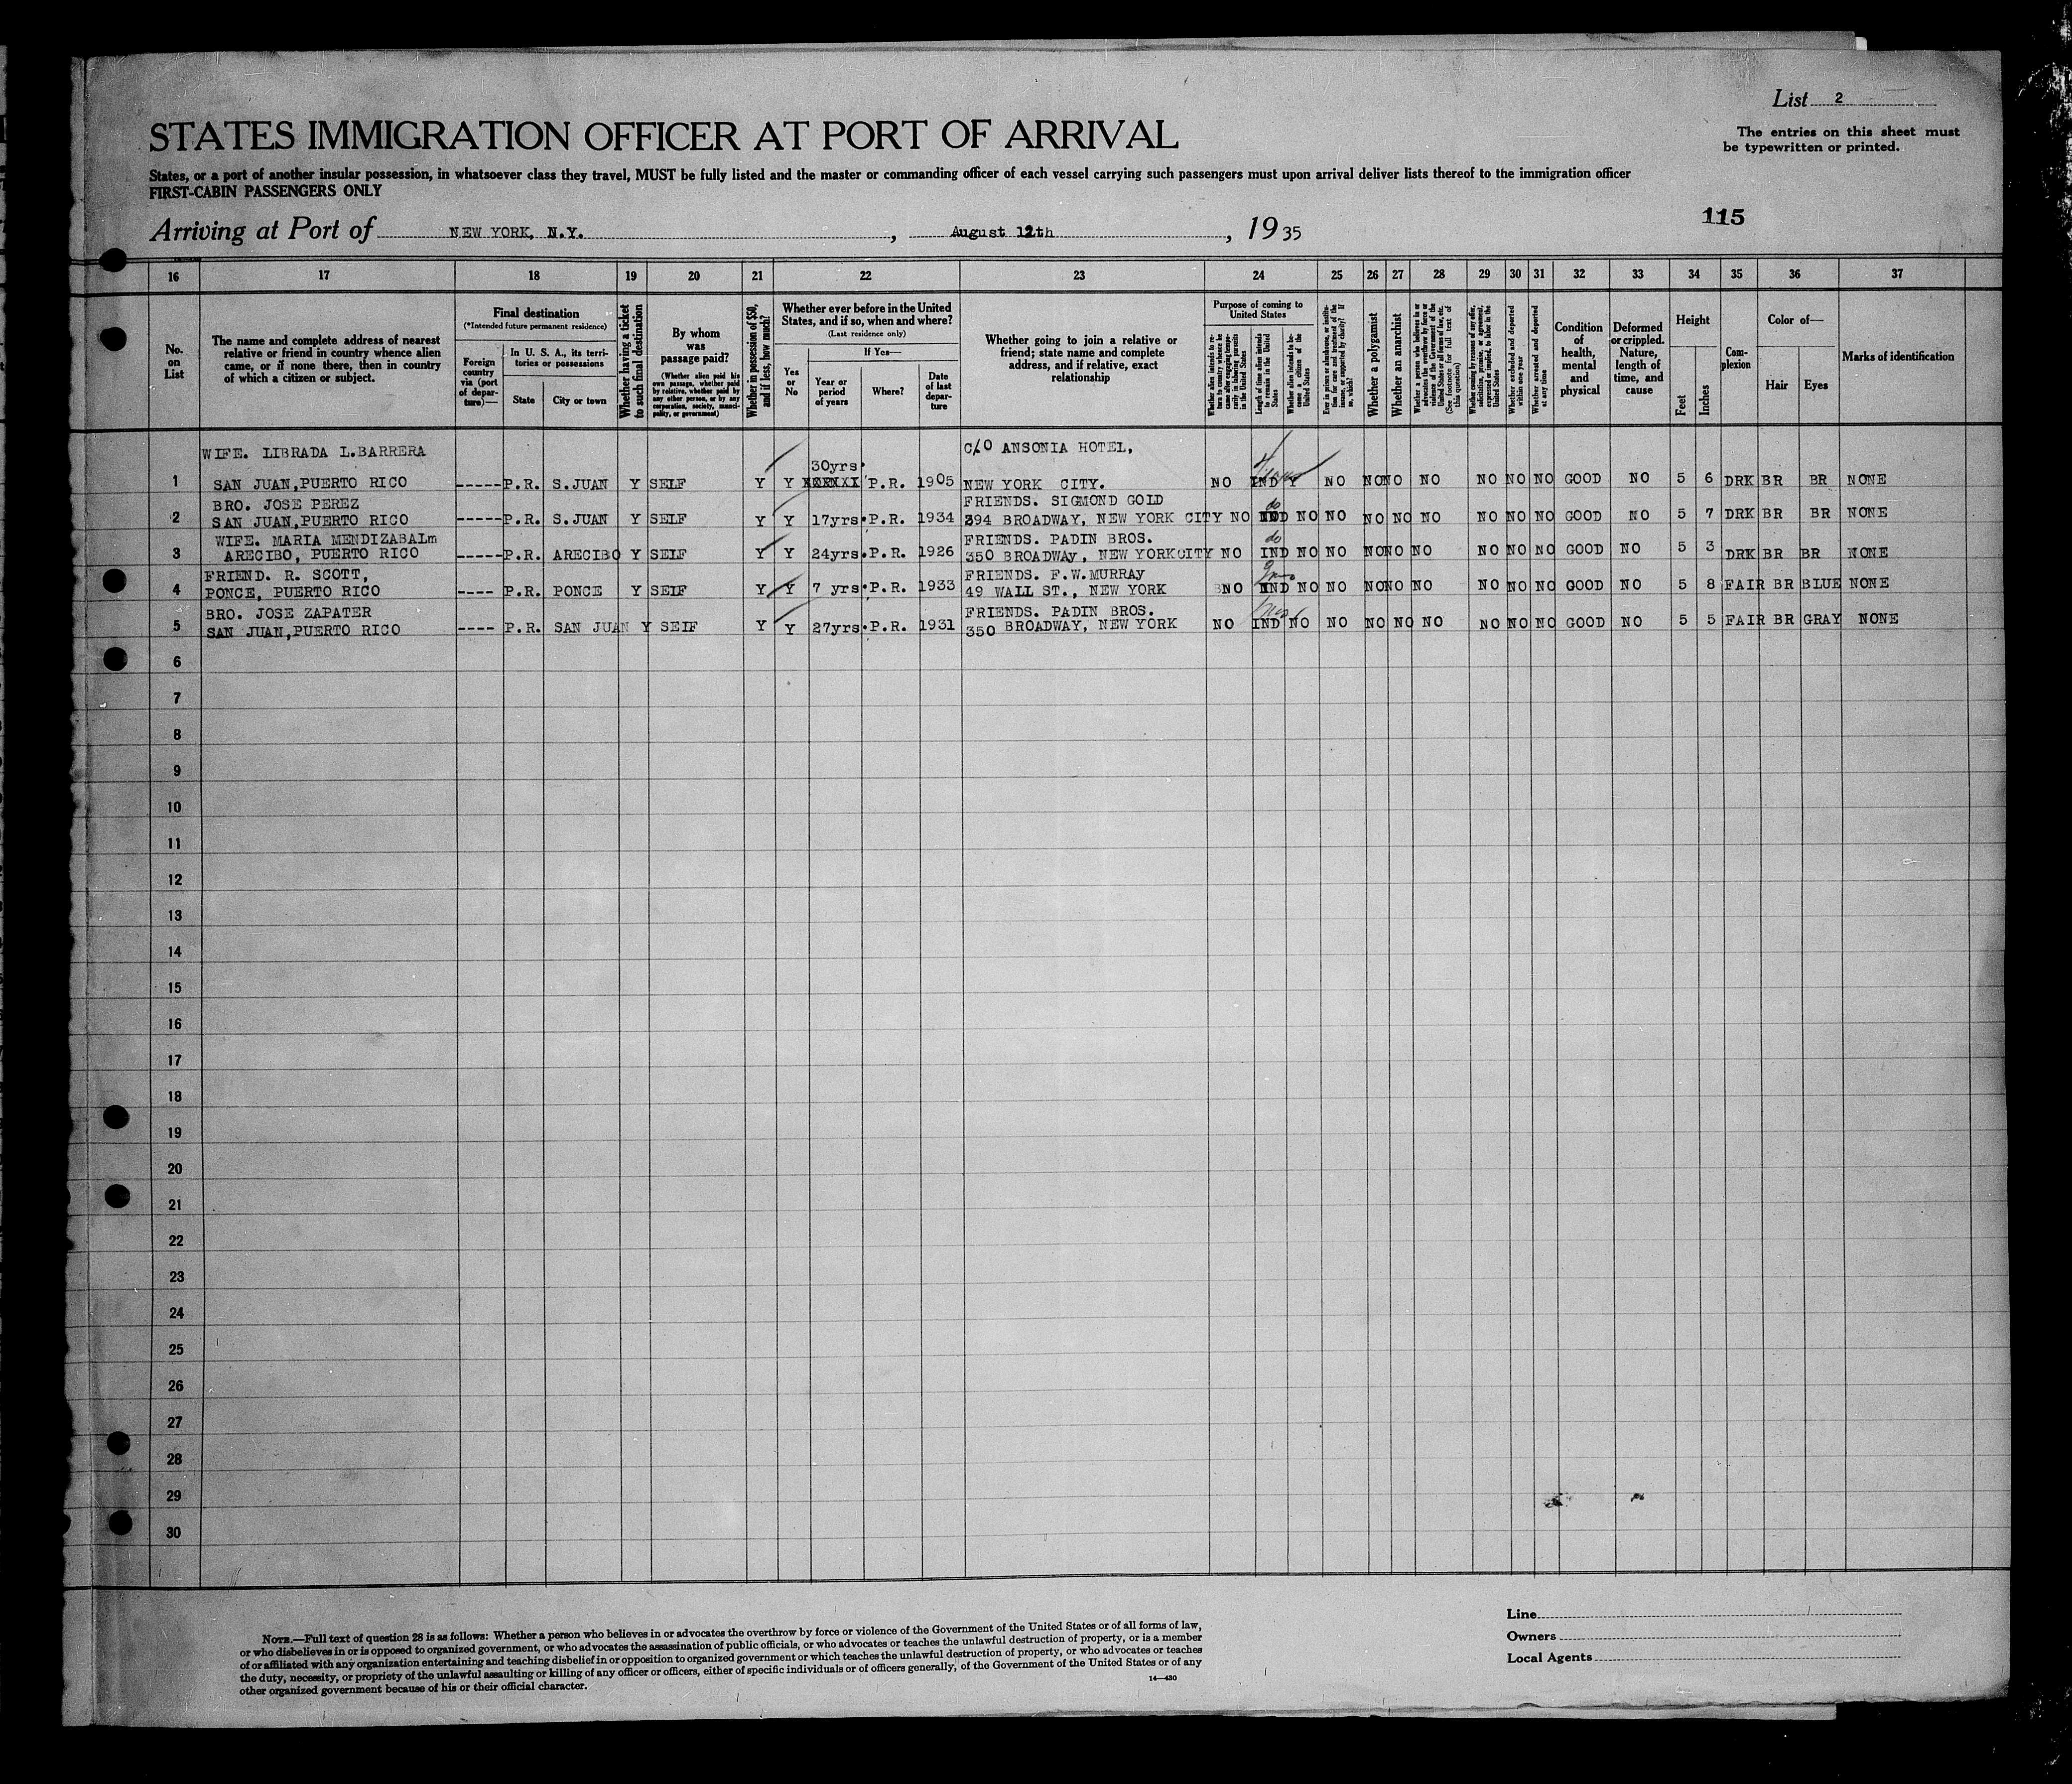 List 2
The entries on this sheet must
be typewritten or printed.
STATES IMMIGRATION OFFICER AT PORT OF ARRIVAL
States, or a port of another insular possession, in whatsoever class they travel, MUST be fully listed and the master or commanding officer of each vessel carrying such passengers must upon arrival deliver lists thereof to the immigration officer
FIRST-CABIN PASSENGERS ONLY
115
Arriving at Port of NEW YORK, N.Y. , August 12th , 1935
16 17 18 19 20 21 22 23 24 25 26 27 28 29 30 31 32 33 34 35 36 37
No. on List
The name and complete address of nearest
relative or friend in country whence alien
came, or if none there, then in country
of which a citizen or subject.
Final destination
(*Intended future permanent residence)
Foreign country via (port of departure)—
In U. S. A., its territories or possessions
State
City or town
Whether having a ticket to such final destination
By whom was passage paid?
(Whether alien paid his own passage, whether paid by relative, whether paid by any other person, or by any corporation, society, municipality, or government)
Whether in possession of $50, and if less, how much?
Whether ever before in the United
States, and if so, when and where?
(Last residence only)
Yes or No
If Yes—
Year or period of years
Where?
Date of last departure
Whether going to join a relative or
friend; state name and complete
address, and if relative, exact
relationship
Purpose of coming to United States
Whether alien intends to return to country whence he came after engaging temporarily in laboring pursuits in the United States
Length of time alien intends to remain in the United States
Whether alien intends to become a citizen of the United States
Ever in prison or almshouse, or institution for care and treatment of the insane, or supported by charity? If so, which?
Whether a polygamist
Whether an anarchist
Whether a person who believes in or advocates the overthrow by force or violence of the Government of the United States or all forms of law, etc. (See footnote for full text of this question)
Whether coming by reason of any offer, solicitation, promise, or agreement, expressed or implied, to labor in the United States
Whether excluded and deported within one year
Whether arrested and deported at any time
Condition of health, mental and physical
Deformed or crippled. Nature, length of time, and cause
Height
Feet
Inches
Complexion
Color of—
Hair
Eyes
Marks of identification
WIFE. LIBRADA L.BARRERA 30yrs. C/O ANSONIA HOTEL,
1 SAN JUAN,PUERTO RICO -----P.R. S.JUAN Y SELF Y Y P.R. 1905 NEW YORK CITY. NO IND Y NO NO NO NO NO NO NO GOOD NO 5 6 DRK BR BR NONE
BRO. JOSE PEREZ FRIENDS. SIGMOND GOLD do
2 SAN JUAN,PUERTO RICO -----P.R. S.JUAN Y SELF Y Y 17yrs. P.R. 1934 394 BROADWAY, NEW YORK CITY NO IND NO NO NO NO NO NO NO NO GOOD NO 5 7 DRK BR BR NONE
WIFE. MARIA MENDIZABALm FRIENDS. PADIN BROS. do
3 ARECIBO, PUERTO RICO -----P.R. ARECIBO Y SELF Y Y 24yrs. P.R. 1926 350 BROADWAY, NEW YORKCITY NO IND NO NO NO NO NO NO NO NO GOOD NO 5 3 DRK BR BR NONE
FRIEND. R. SCOTT, FRIENDS. F.W.MURRAY
4 PONCE, PUERTO RICO ---- P.R. PONCE Y SELF Y Y 7 yrs. P.R. 1933 49 WALL ST., NEW YORK NO IND NO NO NO NO NO NO NO NO GOOD NO 5 8 FAIR BR BLUE NONE
BRO. JOSE ZAPATER FRIENDS. PADIN BROS.
5 SAN JUAN,PUERTO RICO ---- P.R. SAN JUAN Y SELF Y Y 27yrs. P.R. 1931 350 BROADWAY, NEW YORK NO IND NO NO NO NO NO NO NO NO GOOD NO 5 5 FAIR BR GRAY NONE
6
7
8
9
10
11
12
13
14
15
16
17
18
19
20
21
22
23
24
25
26
27
28
29
30
NOTE.—Full text of question 28 is as follows: Whether a person who believes in or advocates the overthrow by force or violence of the Government of the United States or of all forms of law,
or who disbelieves in or is opposed to organized government, or who advocates the assassination of public officials, or who advocates or teaches the unlawful destruction of property, or is a member
of or affiliated with any organization entertaining and teaching disbelief in or opposition to organized government or which teaches the unlawful destruction of property, or who advocates or teaches
the duty, necessity, or propriety of the unlawful assaulting or killing of any officer or officers, either of specific individuals or of officers generally, of the Government of the United States or of any
other organized government because of his or their official character.
14—430
Line
Owners
Local Agents